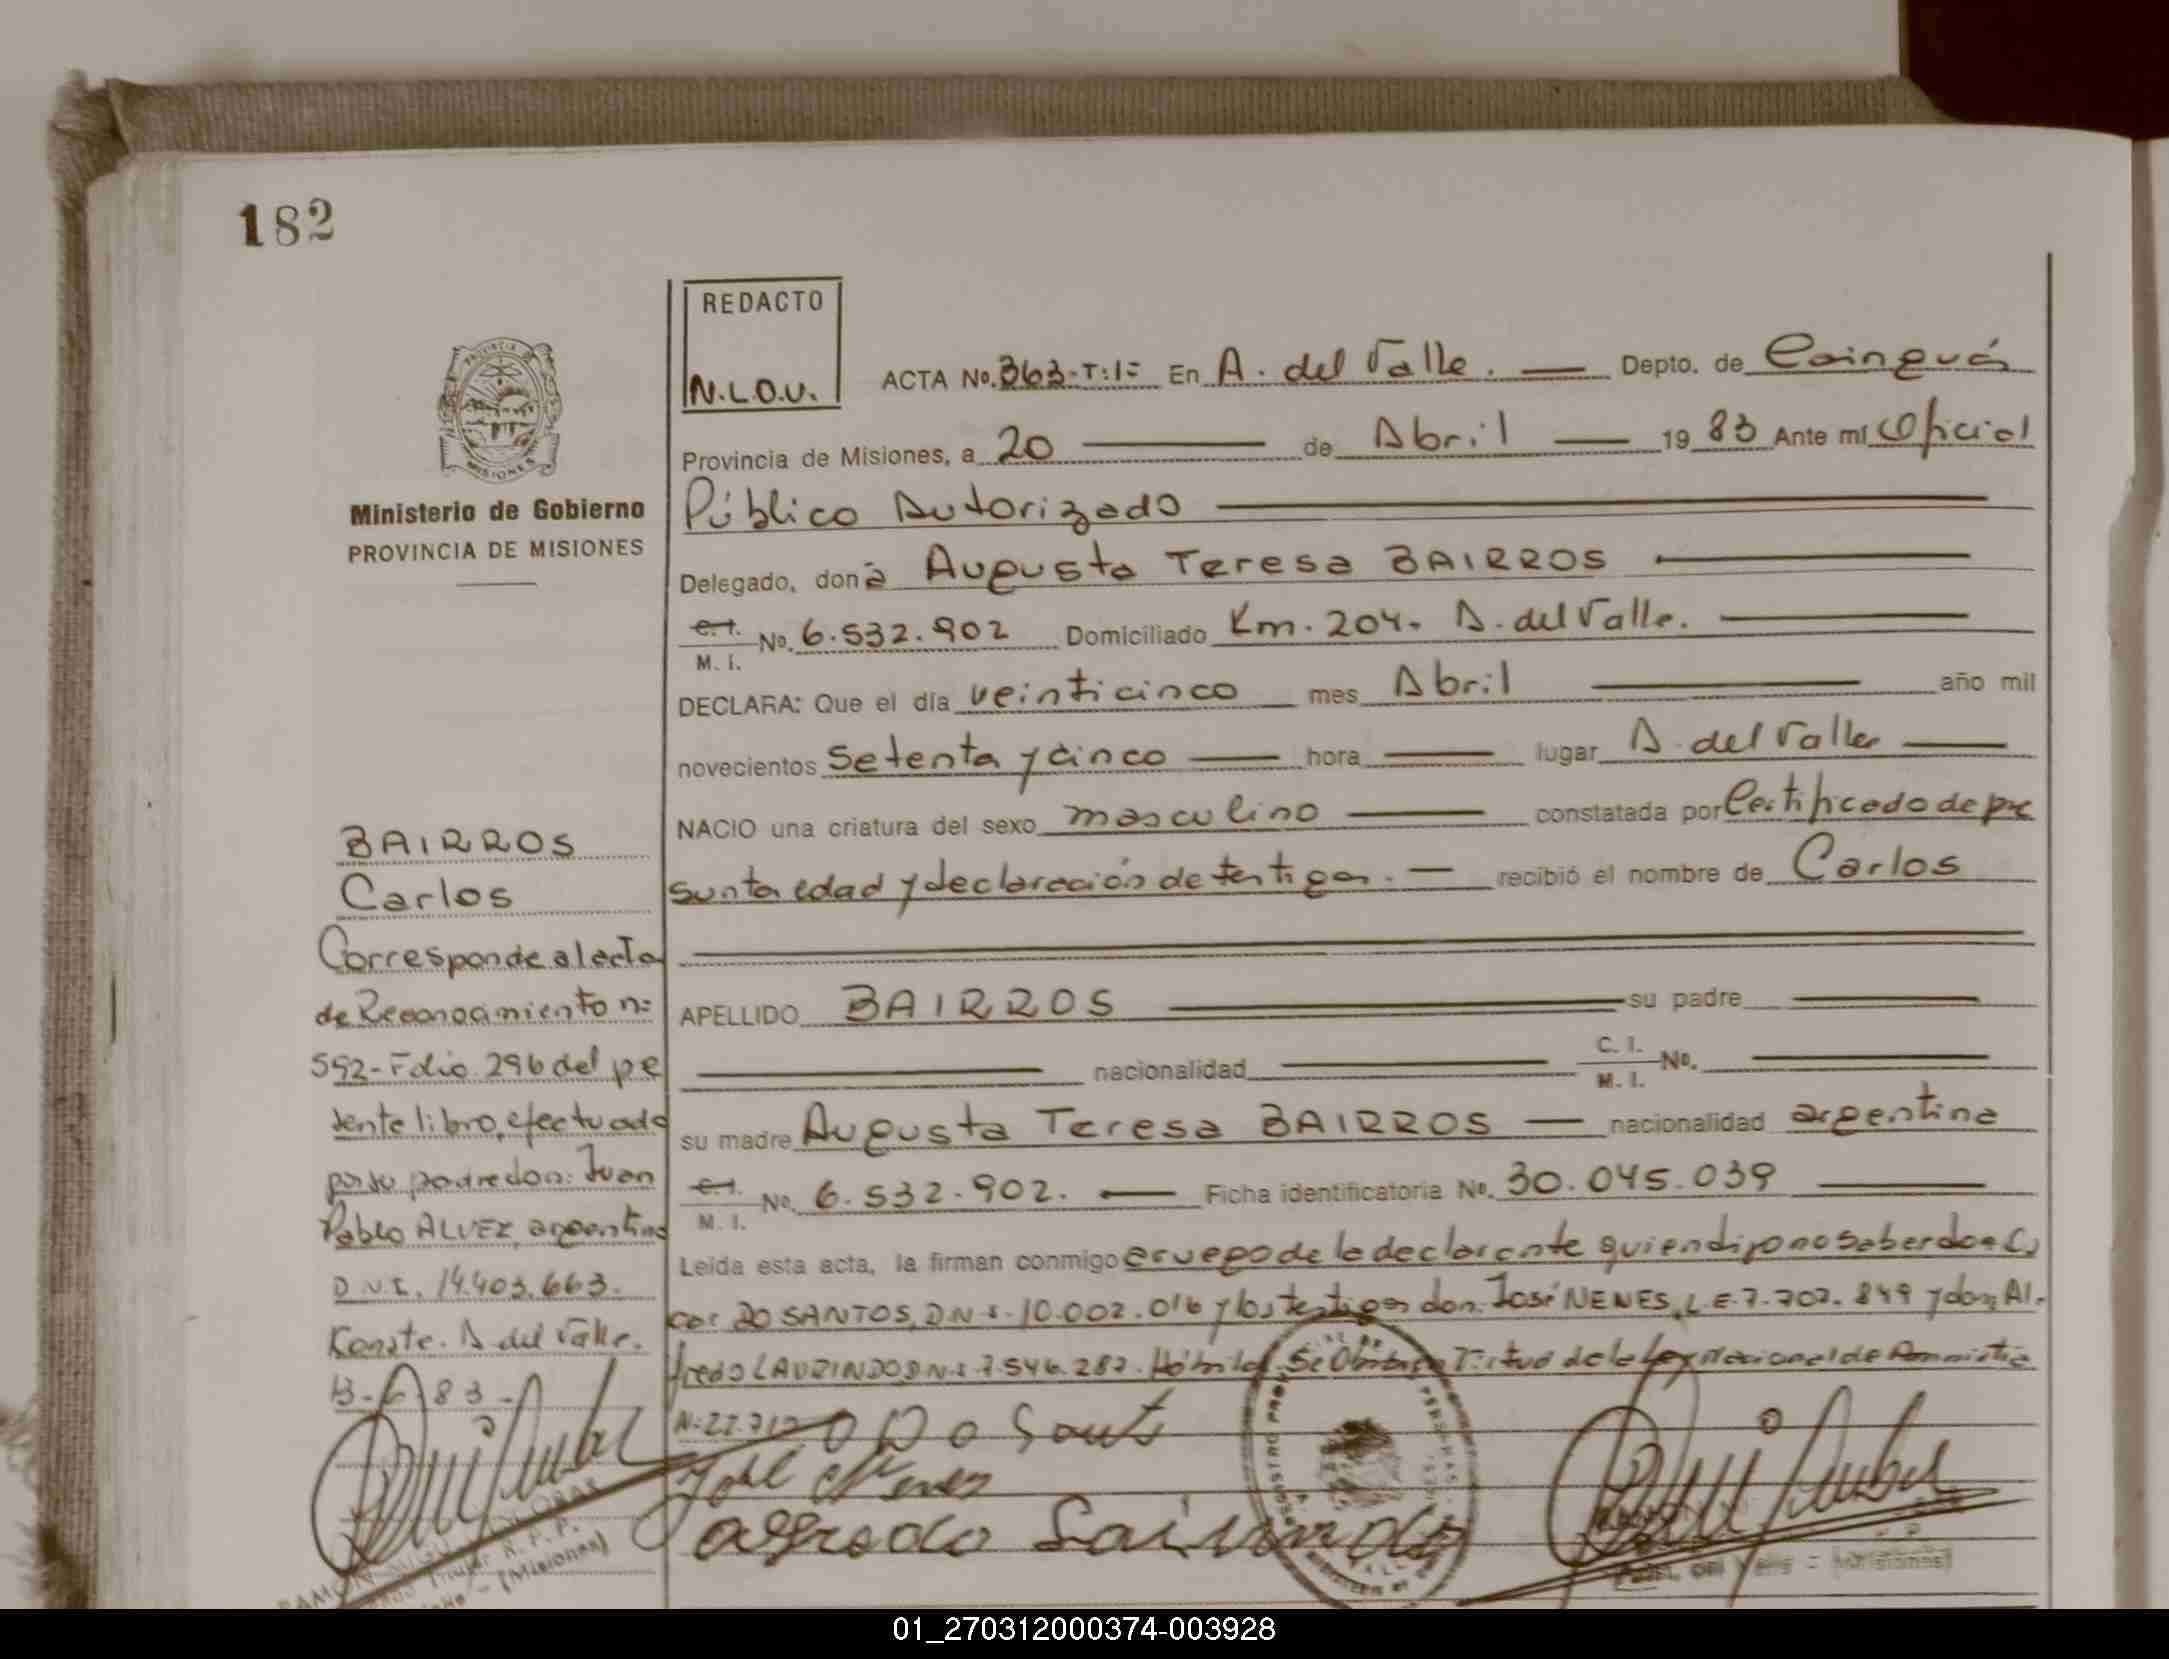 182
REDACTO
N.L.O.U.
ACTA No. 363-T:1= En A. del Valle. Depto. de Cainguás
Provincia de Misiones, a 20 de Abril 1983 Ante mí Oficial
Público Autorizado
Delegado, doña Augusta Teresa BAIRROS
C.I. M.I. No. 6.532.902 Domiciliado Km. 204. A. del Valle.
DECLARA: Que el día veinticinco mes Abril año mil
novecientos setenta y cinco hora lugar A. del Valle
NACIO una criatura del sexo masculino constatada por Certificado de pre
sunta edad y declaración de testigos. recibió el nombre de Carlos
APELLIDO BAIRROS su padre
nacionalidad C.I. M.I. No.
su madre Augusta Teresa BAIRROS nacionalidad argentina
C.I. M.I. No. 6.532.902. Ficha identificatoria No. 30.045.039
Leída esta acta, la firman conmigo a ruego de la declarante quien dijo no saber don
DO SANTOS, D.N.I. 10.002.016 y los testigos don: José NENES, L.E. 7.707.849 y don, Al-
fredo LAURINDO D.N.I. 7.546.287. Hábiles. Se Virtud de la Ley Nacional de Amnistía
N: 22.
José Nenes
PROVINCIA DE
MISIONES
Ministerio de Gobierno
PROVINCIA DE MISIONES
BAIRROS
Carlos
Corresponde al acta
de Reconocimiento n=
592-Folio 296 del pre
sente libro, efectuado
por su padre don: Juan
Pablo ALVEZ, argentino
D.N.I. 14.403.663.
Conste. A. del Valle.
13-6-83-
RAMON
(Misiones)
01_270312000374-003928